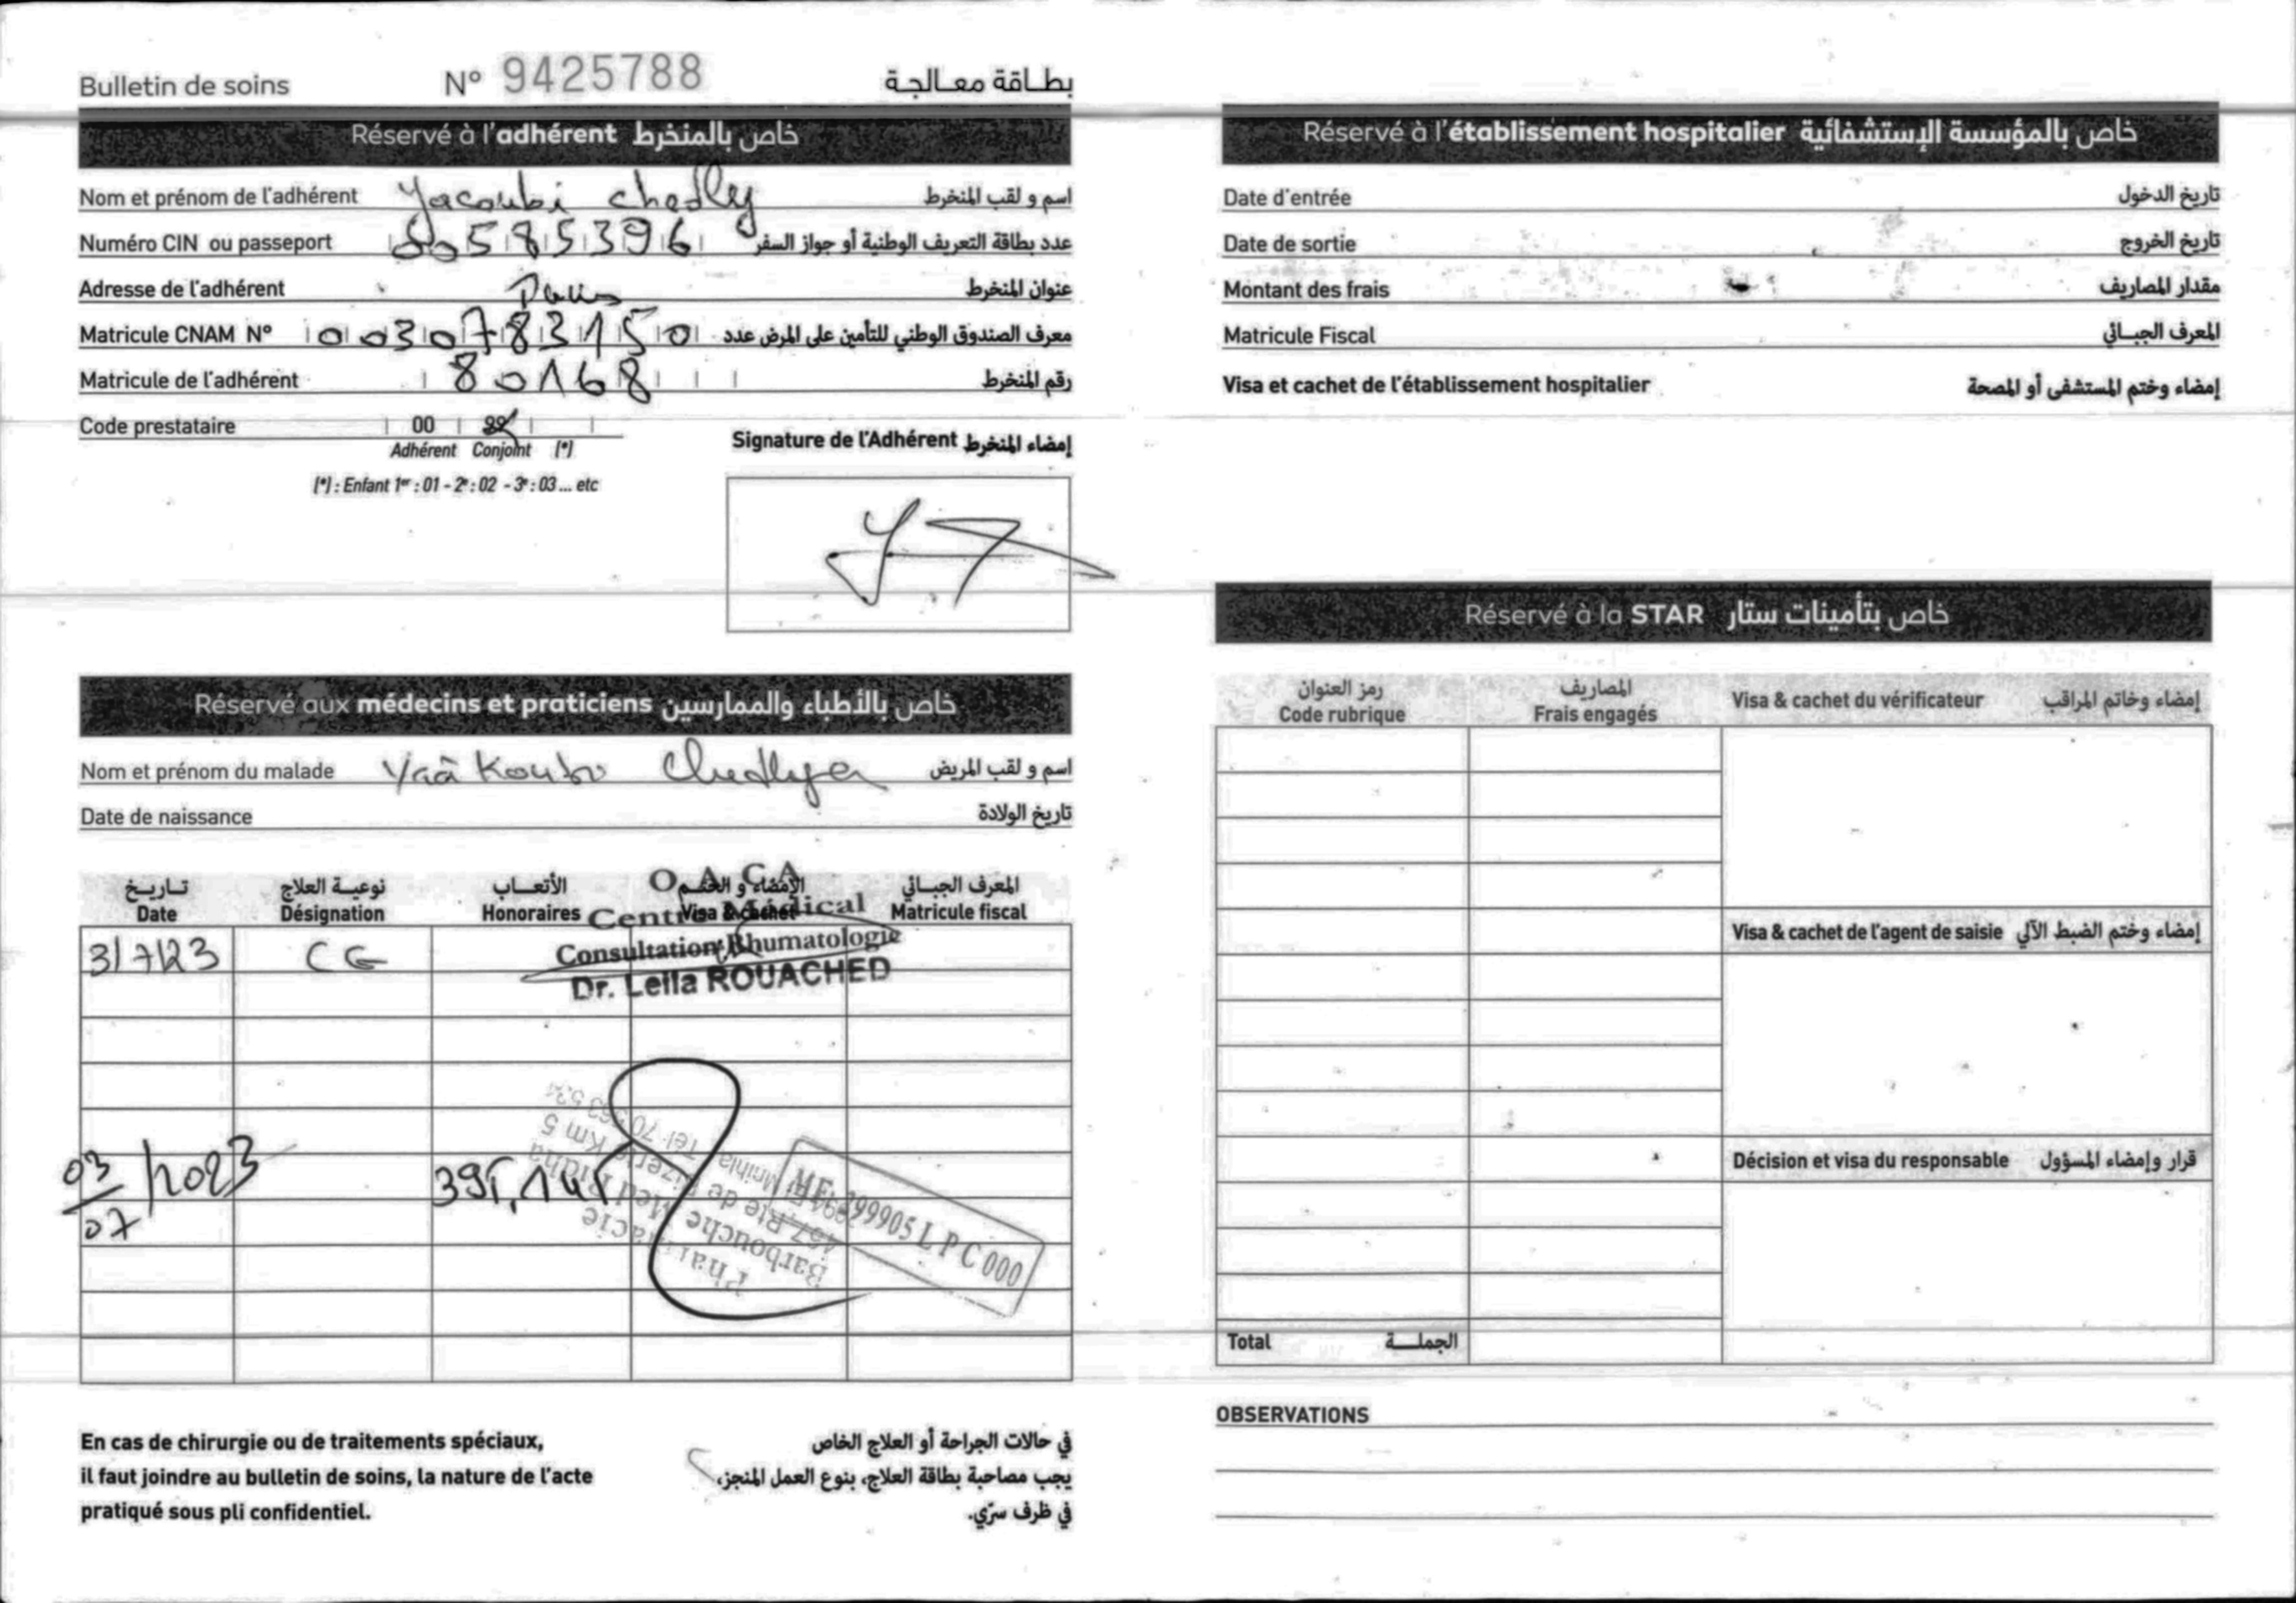 Bulletin de soins N° 9425788 بطاقة معالجة
Réservé à l'adhérent خاص بالمنخرط
Nom et prénom de l'adhérent Yacoubi chedly اسم و لقب المنخرط
Numéro CIN ou passeport 00585396 عدد بطاقة التعريف الوطنية أو جواز السفر
Adresse de l'adhérent عنوان المنخرط
Matricule CNAM N° 0030783150 معرف الصندوق الوطني للتأمين على المرض عدد
Matricule de l'adhérent 80168 رقم المنخرط
Code prestataire 00 99
Adhérent Conjoint (*)
(*) : Enfant 1er : 01 - 2e : 02 - 3e : 03 ... etc
Signature de l'Adhérent إمضاء المنخرط
Réservé aux médecins et praticiens خاص بالأطباء والممارسين
Nom et prénom du malade Yaâkoubi Chedlya اسم و لقب المريض
Date de naissance تاريخ الولادة
تاريخ نوعية العلاج الأتعاب الإمضاء و الختم المعرف الجبائي
Date Désignation Honoraires Visa & cachet Matricule fiscal
O A C A
Centre Médical
Consultation Rhumatologie
Dr. Leila ROUACHED
3/7/23 CG
03/07/2023 395,145
Pharmacie
Barbouche Med Ridha
457 Rte de Bizerte Km 5
Mnihla Tél: 70 563 534
MF: 799905 L P C 000
En cas de chirurgie ou de traitements spéciaux,
il faut joindre au bulletin de soins, la nature de l'acte
pratiqué sous pli confidentiel.
في حالات الجراحة أو العلاج الخاص
يجب مصاحبة بطاقة العلاج، بنوع العمل المنجز،
في ظرف سرّي.
Réservé à l'établissement hospitalier خاص بالمؤسسة الإستشفائية
Date d'entrée تاريخ الدخول
Date de sortie تاريخ الخروج
Montant des frais مقدار المصاريف
Matricule Fiscal المعرف الجبائي
Visa et cachet de l'établissement hospitalier إمضاء وختم المستشفى أو المصحة
Réservé à la STAR خاص بتأمينات ستار
رمز العنوان المصاريف
Code rubrique Frais engagés Visa & cachet du vérificateur إمضاء وخاتم المراقب
Visa & cachet de l'agent de saisie إمضاء وختم الضبط الآلي
Décision et visa du responsable قرار وإمضاء المسؤول
Total الجملة
OBSERVATIONS